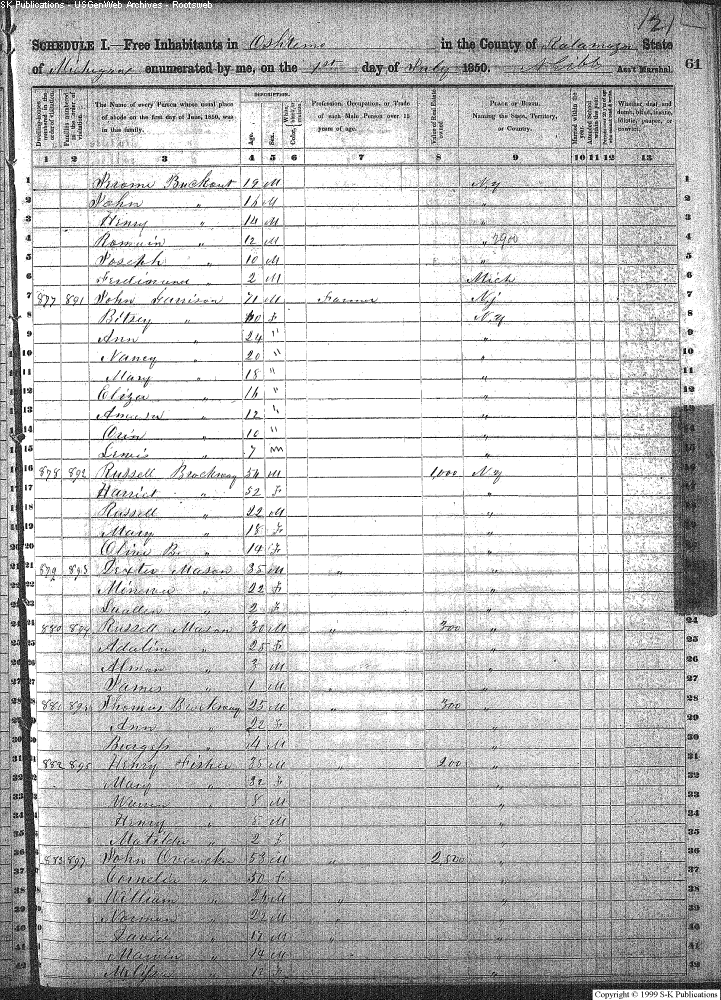 SK Publications - USGenWeb Archives - Rootsweb
121
SCHEDULE I.—Free Inhabitants in Oshtemo in the County of Kalamazoo State
of Michigan enumerated by me, on the 1st day of July 1850. A Cobb Ass't Marshal. 61
Dwelling-houses numbered in the order of visitation.
Families numbered in the order of visitation.
The Name of every Person whose usual place of abode on the first day of June, 1850, was in this family.
DESCRIPTION.
Age.
Sex.
Color,
Profession, Occupation, or Trade of each Male Person over 15 years of age.
Value of Real Estate owned.
PLACE OF BIRTH.
Naming the State, Territory, or Country.
Married within the year.
Attended School within the year.
Whether deaf and dumb, blind, insane, idiotic, pauper, or convict.
1 2 3 4 5 6 7 8 9 10 11 12 13
1 Jerome Buckout 19 M N.Y 1
2 John " M " 2
3 Henry " 14 M " 3
4 Romain " 12 M " 4
5 Joseph " 10 M " 5
6 Ferdinand " 2 M Mich 6
7 877 891 John Farrison 71 M Farmer N.J 7
8 Bitsey " F N.Y 8
9 Ann " 24 " " 9
10 Nancy " 20 " " 10
11 Mary " 18 " " 11
12 Eliza " 16 " " 12
13 " 12 " " 13
14 Orin " 10 " " 14
15 Lewis " 7 m " 15
16 878 892 Russell Brockway 54 M 1,000 N.Y 16
17 Harriet " 52 F " 17
18 Russell " 22 M " 18
19 Mary " 18 F " 19
20 Olive B. " 14 F " 20
21 879 893 Dexter Mason 35 M " " 21
22 Minerva " 22 F " 22
23 " 2 F " 23
24 880 894 Russell Mason 30 M " 300 " 24
25 Adaline " 25 F " 25
26 Alman " 3 M " 26
27 James " 1 M " 27
28 881 895 Thomas Brockway 25 M " 300 " 28
29 Ann " 22 F " 29
30 Burgess " 4 M " 30
31 882 896 Henry Fisher 35 M " 200 " 31
32 Mary " 32 F " 32
33 " 8 M " 33
34 Henry " 5 M " 34
35 Matilda " 2 F " 35
36 883 897 John 53 M " 2,500 " 36
37 Cornelia " 50 F " 37
38 William " 24 M " " 38
39 Norman " 22 M " " 39
40 David " 17 M " " 40
41 Marvin " 14 M " 41
42 " F " 42
Copyright © 1999 S-K Publications